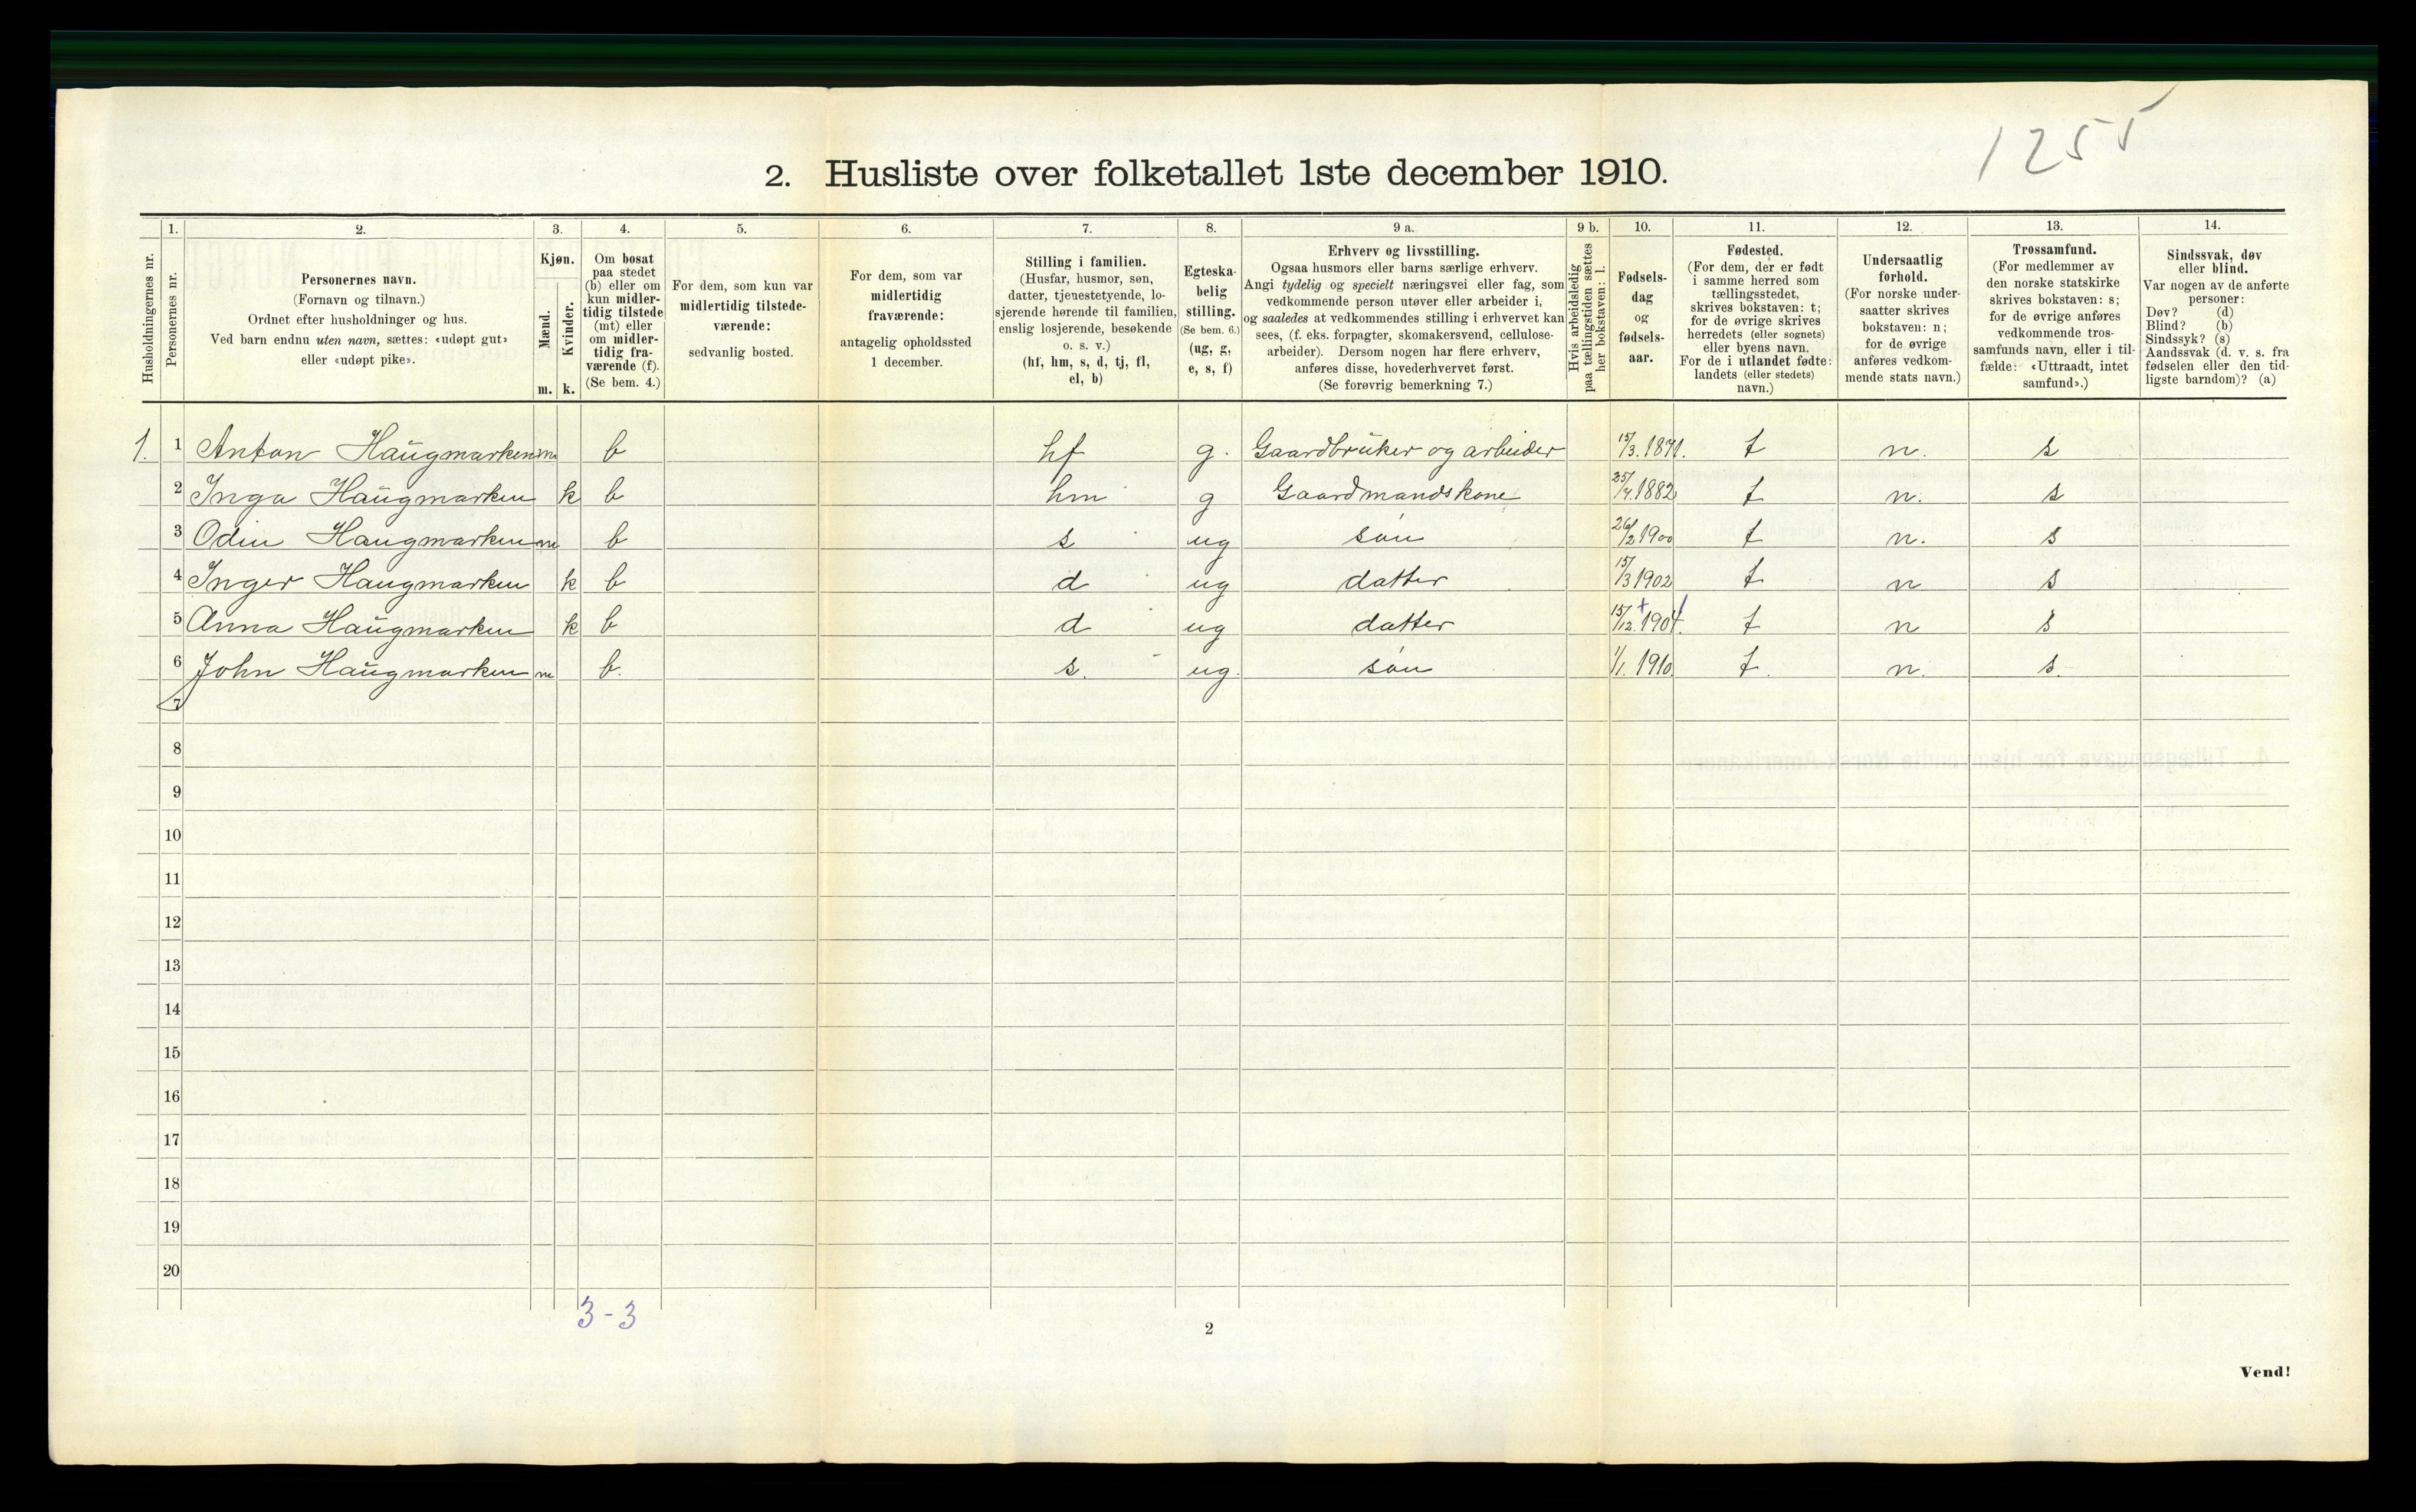 1255
2. Husliste over folketallet 1ste december 1910.
Husholdningernes nr.
1.
Personernes nr.
2.
Personernes navn.
(Fornavn og tilnavn.)
Ordnet efter husholdninger og hus.
Ved barn endnu uten navn, sættes: «udøpt gut»
eller «udøpt pike».
3.
Kjøn.
Mænd.
Kvinder.
m. k.
4.
Om bosat
paa stedet
(b) eller om
kun midler-
tidig tilstede
(mt) eller
om midler-
tidig fra-
værende (f).
(Se bem. 4.)
5.
For dem, som kun var
midlertidig tilstede-
værende:
sedvanlig bosted.
6.
For dem, som var
midlertidig
fraværende:
antagelig opholdssted
1 december.
7.
Stilling i familien.
(Husfar, husmor, søn,
datter, tjenestetyende, lo-
sjerende hørende til familien,
enslig losjerende, besøkende
o. s. v.)
(hf, hm, s, d, tj, fl,
el, b)
8.
Egteska-
belig
stilling.
(Se bem. 6.)
(ug, g,
e, s, f)
9 a.
Erhverv og livsstilling.
Ogsaa husmors eller barns særlige erhverv.
Angi tydelig og specielt næringsvei eller fag, som
vedkommende person utøver eller arbeider i,
og saaledes at vedkommendes stilling i erhvervet kan
sees, (f. eks. forpagter, skomakersvend, cellulose-
arbeider). Dersom nogen har flere erhverv,
anføres disse, hovederhvervet først.
(Se forøvrig bemerkning 7.)
9 b.
Hvis arbeidsledig
paa tællingstiden sættes
her bokstaven: l.
10.
Fødsels-
dag
og
fødsels-
aar.
11.
Fødested.
(For dem, der er født
i samme herred som
tællingsstedet,
skrives bokstaven: t;
for de øvrige skrives
herredets (eller sognets)
eller byens navn.
For de i utlandet fødte:
landets (eller stedets)
navn.)
12.
Undersaatlig
forhold.
(For norske under-
saatter skrives
bokstaven: n;
for de øvrige
anføres vedkom-
mende stats navn.)
13.
Trossamfund.
(For medlemmer av
den norske statskirke
skrives bokstaven: s;
for de øvrige anføres
vedkommende tros-
samfunds navn, eller i til-
fælde: «Uttraadt, intet
samfund».)
14.
Sindssvak, døv
eller blind.
Var nogen av de anførte
personer:
Døv? (d)
Blind? (b)
Sindssyk? (s)
Aandssvak (d. v. s. fra
fødselen eller den tid-
ligste barndom)? (a)
1. 1 Anton Haugmarken m b hf g. Gaardbruker og arbeider 15/3.1871. t n. s
2 Inga Haugmarken k b hm g Gaardmandskone 25/4.1882 t n. s
3 Odin Haugmarken m b s ug søn 26/2 1900 t n. s
4 Inger Haugmarken k b d ug datter 15/3 1902 t n s
5 Anna Haugmarken k b d ug datter 15/12. 1904. t n s
6 John Haugmarken m b. s. ug. søn 1/1. 1910. t. n. s.
7
8
9
10
11
12
13
14
15
16
17
18
19
20
3-3
2
Vend!